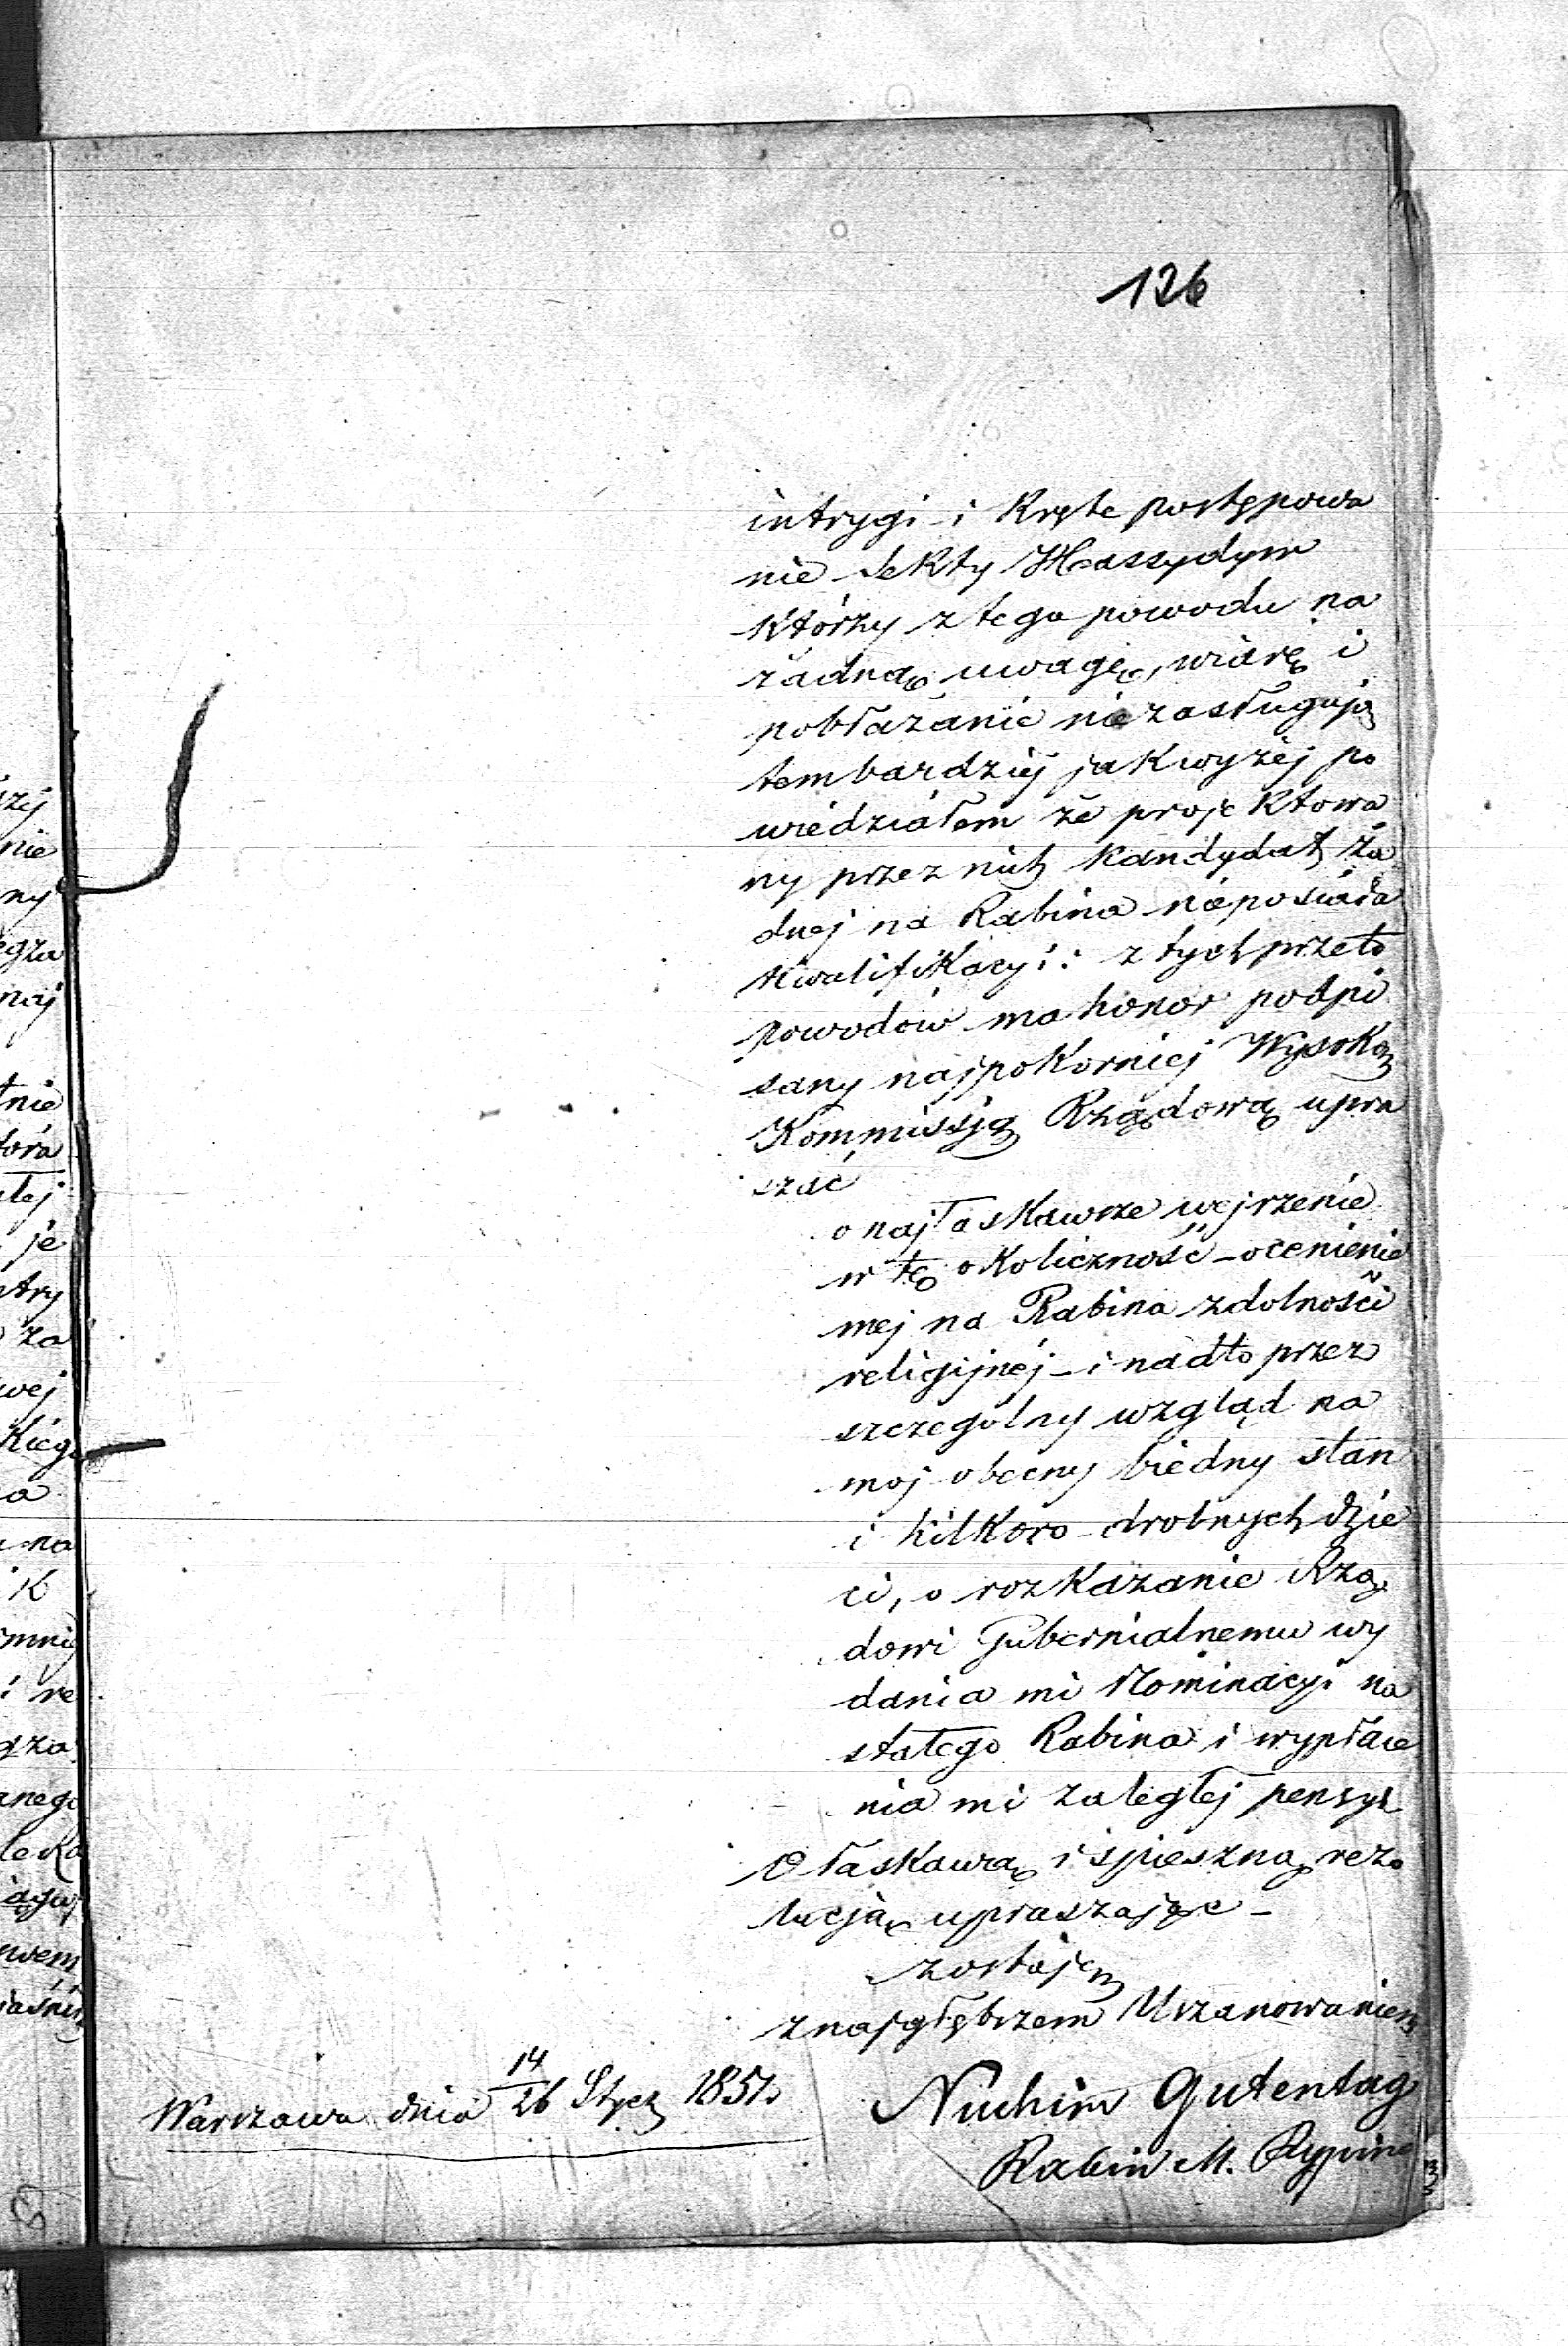 126
intrygi i kręte postępowa
nie sekty Hassydym
którzy z tego powodu na
żadną uwagę, wiarę i
pobłażanie nie zasługują
tembardziej jak wyżej po
wiedziałem że projektowa
ny przez nich kandydat ża
dnej na Rabina nieposiada
kwalifikacyi: z tych przeto
powodów ma honor podpi
sany najpokorniej Wysoką
Kommissję Rządową upra
szać
o najłaskawsze wejrzenie
w tę okoliczność - ocenienie
mej na Rabina zdolności
religijnéj - i nadto przez
szczególny wzgląd na
moj obecny biedny stan
i kilkoro drobnych dzie
ci, o rozkazanie Rzą
dowi Gubernialnemu wy
dania mi Nominacyi na
stałego Rabina i wypłace
nia mi zaległej pensyi
O łaskawą i spieszną rezo
lucją upraszając -
zostaję
z najgłębszem Uszanowaniem
Warszawa dnia 14/26 Stycz 1851.
Nuchim Gutentag
Rabin M. Rypina
zej
nie
ny
egza
naj
tnie
tóra
łej
je
ntry
za
wej
kiego
a
na
k
re
gza
anego
wem